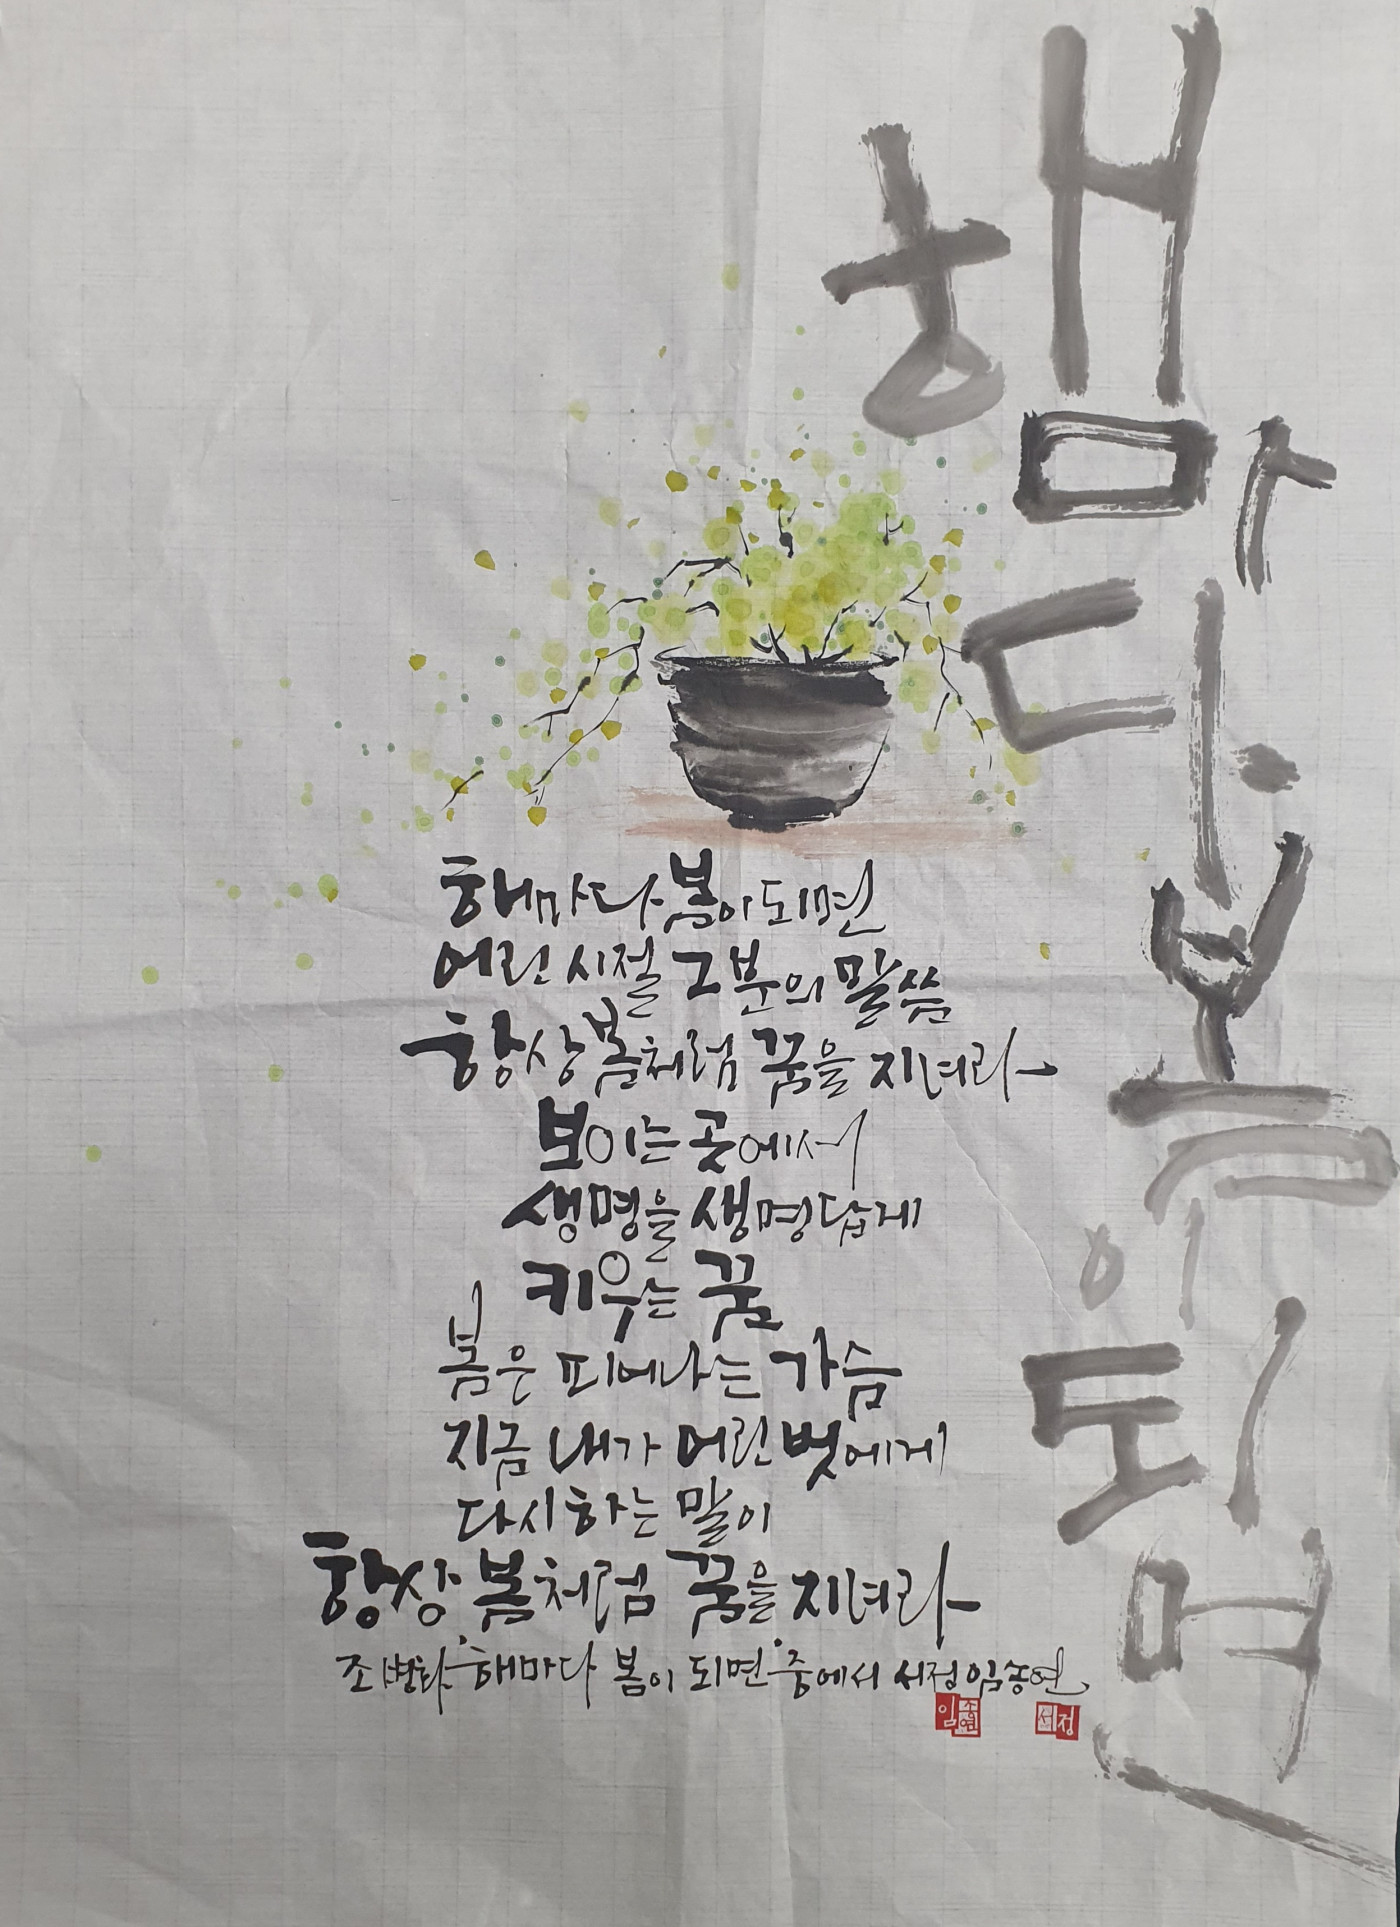 해마다 봄이 되면
해마다 봄이 되면
어린 시절 그분의 말씀
항상 봄처럼 꿈을 지녀라
보이는 곳에서
생명을 생명답게
키우는 꿈
봄은 피어나는 가슴
지금 내가 어린 벗에게
다시 하는 말이
항상 봄처럼 꿈을 지녀라
조병화 '해마다 봄이 되면' 중에서 서정 임송연
임송연
서정